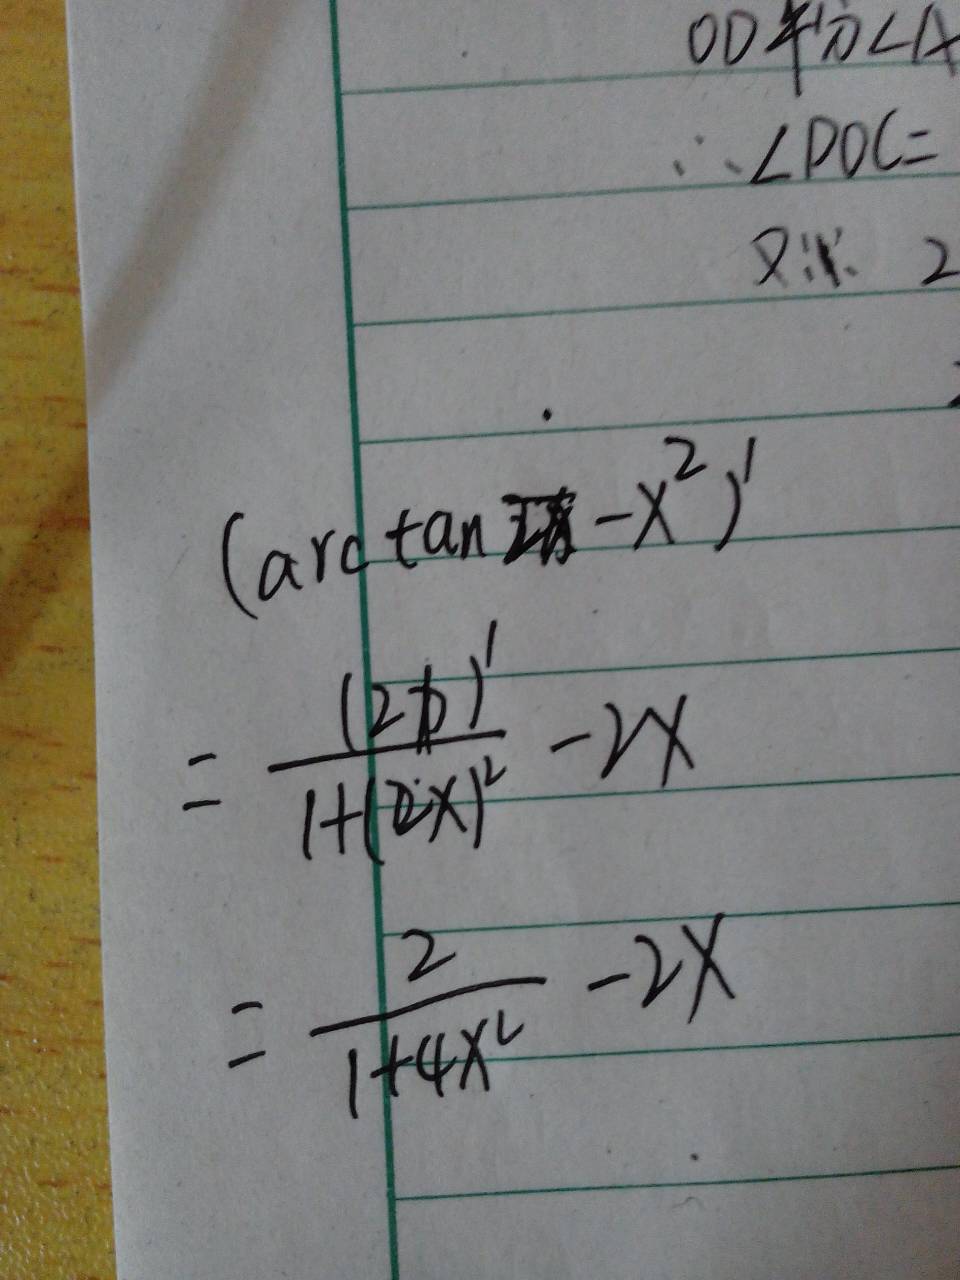 OD平分∠A
∴∠DOC=
又∵ 2
(arctan -x²)'
= (2x)' / 1+(2x)² -2x
= 2 / 1+4x² -2x